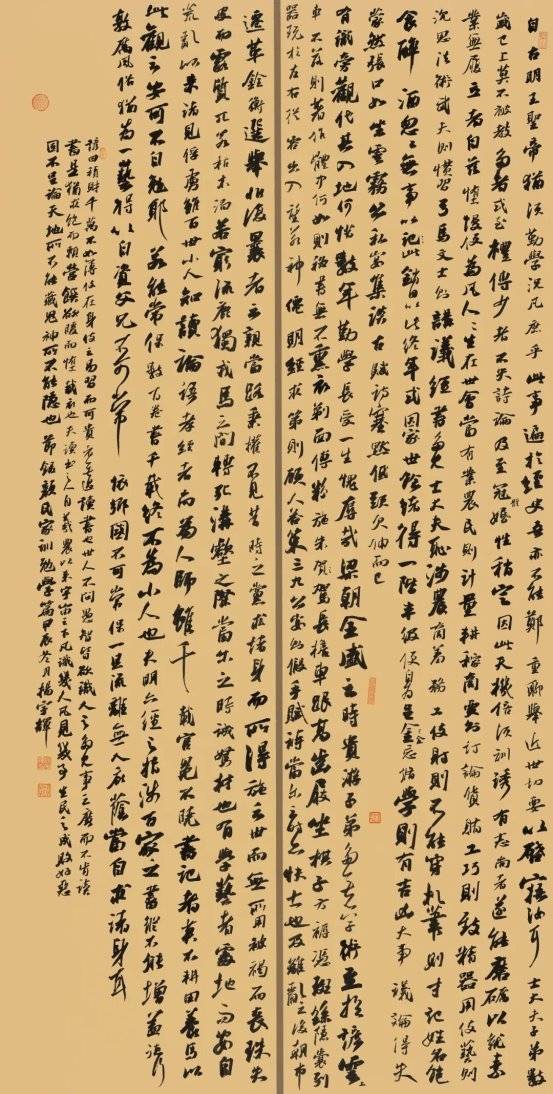 自古明王聖帝猶須勤學況凡庶乎此事遍於經史吾亦不能鄭重聊舉近世切要以啟寤汝耳士大夫子弟數
歲已上莫不被教多者或至禮傳少者不失詩論及至冠婚體性稍定因此天機倍須訓誘有志尚者遂能磨礪以就素
業無履立者自茲墮慢便為凡人人生在世會當有業農民則計量耕稼商賈則討論貨賄工巧則致精器用伎藝則
沈思法術武夫則慣習弓馬文士則講議經書多見士大夫恥涉農商羞務工伎射則不能穿札筆則才記姓名飽
食醉酒忽忽無事以此銷日以此終年或因家世餘緒得一階半級便自為足全忘修學則有吉凶大事議論得失
蒙然張口如坐雲霧公私宴集談古賦詩塞默低頭欠伸而已
有識旁觀代其入地何惜數年勤學長受一生愧辱哉梁朝全盛之時貴遊子弟多無學術至於諺雲上
車不落則著作體中何如則秘書無不熏衣剃面傅粉施朱駕長檐車跟高齒屐坐棋子方褥憑斑絲隱囊列
器玩於左右從容出入望若神僊明經求第則顧人答策三九公宴則假手賦詩當爾之時亦快士也及離亂之後朝市
遷革銓衡選舉非復曩者之親當路秉權不見昔時之黨求諸身而無所得施之世而無所用被褐而喪珠失
皮而露質兀若枯木泊若窮流鹿獨戎馬之間轉死溝壑之際當爾之時誠駑材也有學藝者觸地而安自
荒亂以來諸見俘虜雖百世小人知讀論語孝經者尚為人師雖千載冠冕不曉書記者莫不耕田養馬以
此觀之安可不自勉耶若能常保數百卷書千載終不為小人也夫明六經之指涉百家之書縱不能增益德行
敦厲風俗猶為一藝得以自資父兄不可常依鄉國不可常保一旦流離無人庇蔭當自求諸身耳
諺曰積財千萬不如薄伎在身伎之易習而可貴者無過讀書也世人不問愚智皆欲識人之多見事之廣而不肯讀
書是猶求飽而懶營饌欲暖而惰裁衣也夫讀書之人自羲農以來宇宙之下凡識幾人凡見幾事生民之成敗好惡
固不足論天地所不能藏鬼神所不能隱也節錄顏氏家訓勉學篇甲辰冬月楊宇輝